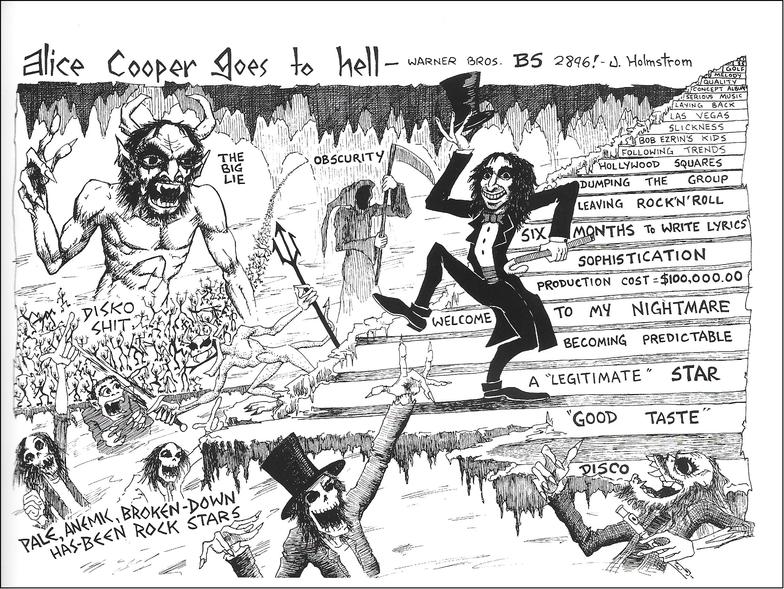 alice Cooper goes to hell— WARNER BROS. BS 2896!- J. Holmstrom
GOLF
MELODY
QUALITY
CONCEPT ALBUM
SERIOUS MUSIC
LAYING BACK
LAS VEGAS
SLICKNESS
BOB EZRIN'S KIDS
FOLLOWING TRENDS
HOLLYWOOD SQUARES
DUMPING THE GROUP
LEAVING ROCK'N'ROLL
SIX MONTHS TO WRITE LYRICS
SOPHISTICATION
PRODUCTION COST = $100,000.00
WELCOME TO MY NIGHTMARE
BECOMING PREDICTABLE
A "LEGITIMATE" STAR
"GOOD TASTE"
DISCO
THE
BIG
LIE
OBSCURITY
DISKO
SHIT
PALE, ANEMIC, BROKEN-DOWN
HAS-BEEN ROCK STARS